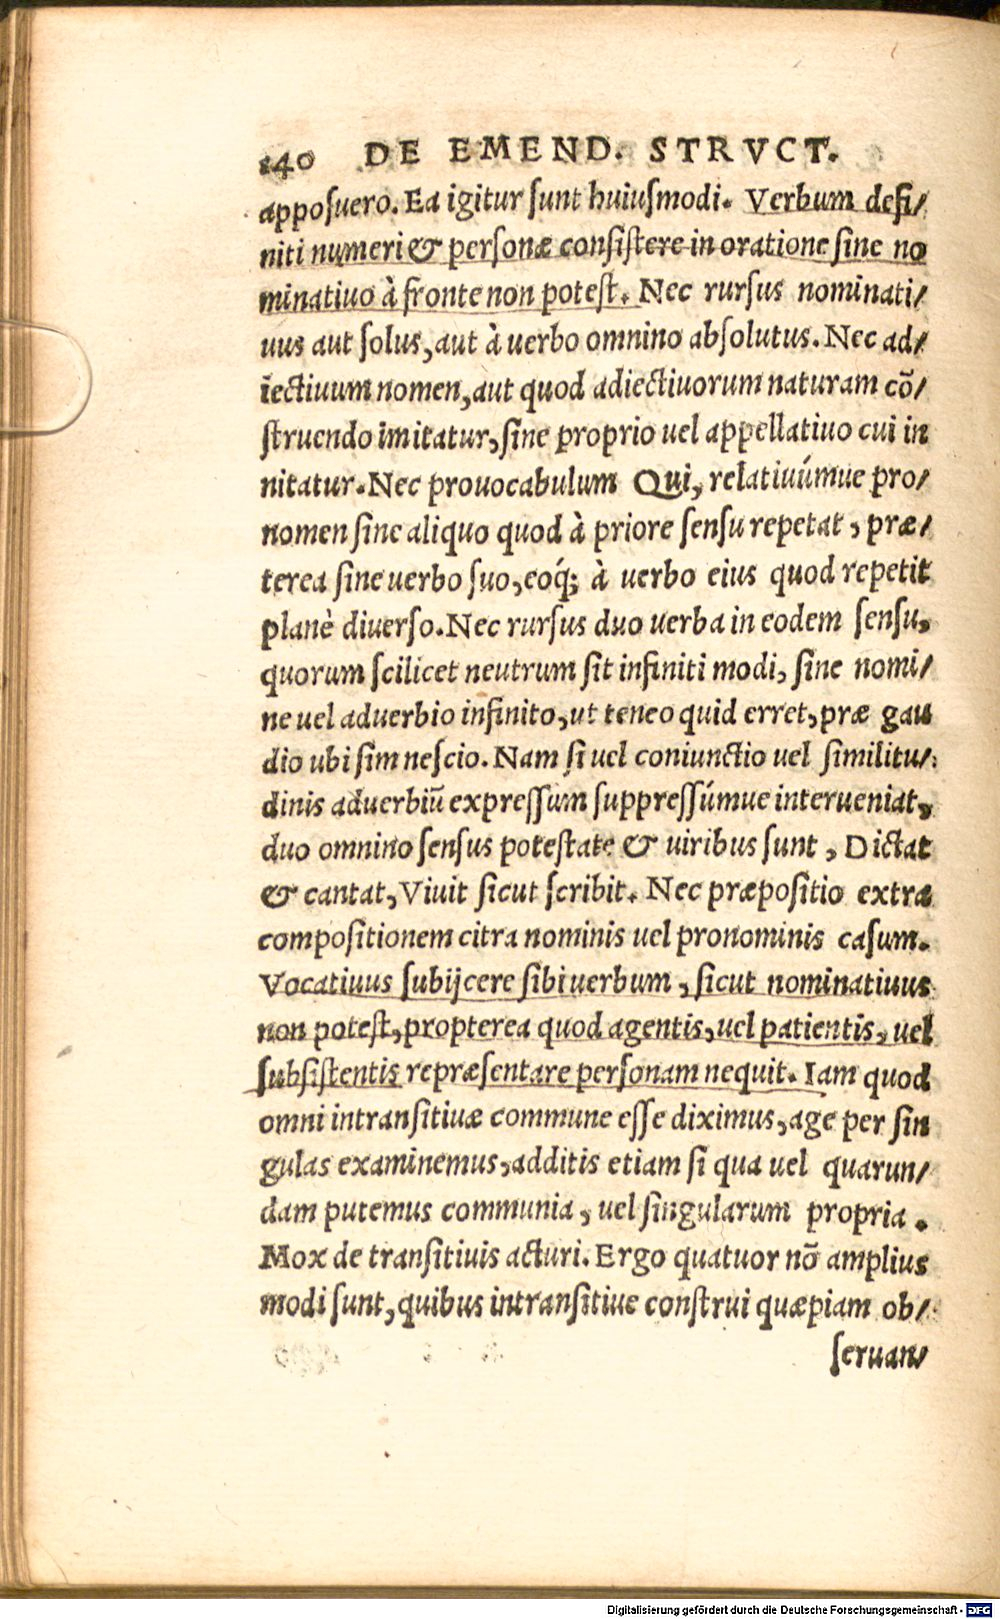 140 DE EMEND. STRVCT.
apposuero. Ea igitur sunt huiusmodi. Verbum defi/
niti numeri & personæ consistere in oratione sine no
minatiuo à fronte non potest. Nec rursus nominati/
uus aut solus, aut à uerbo omnino absolutus. Nec ad/
iectiuum nomen, aut quod adiectiuorum naturam cõ/
struendo imitatur, sine proprio uel appellatiuo cui in
nitatur. Nec prouocabulum Qui, relatiuúmue pro/
nomen sine aliquo quod à priore sensu repetat, præ/
terea sine uerbo suo, eoq́; à uerbo eius quod repetit
planè diuerso. Nec rursus duo uerba in eodem sensu,
quorum scilicet neutrum sit infiniti modi, sine nomi/
ne uel aduerbio infinito, ut teneo quid erret, præ gau
dio ubi sim nescio. Nam si uel coniunctio uel similitu/
dinis aduerbiũ expressum suppressúmue interueniat,
duo omnino sensus potestate & uiribus sunt, Dictat
& cantat, Viuit sicut scribit. Nec præpositio extra
compositionem citra nominis uel pronominis casum.
Vocatiuus subijcere sibi uerbum, sicut nominatiuus
non potest, propterea quod agentis, uel patientis, uel
subsistentis repræsentare personam nequit. Iam quod
omni intransitiuæ commune esse diximus, age per sin
gulas examinemus, additis etiam si qua uel quarun/
dam putemus communia, uel singularum propria.
Mox de transitiuis acturi. Ergo quatuor nõ amplius
modi sunt, quibus intransitiue construi quæpiam ob/
seruan/
Digitalisierung gefördert durch die Deutsche Forschungsgemeinschaft - DFG